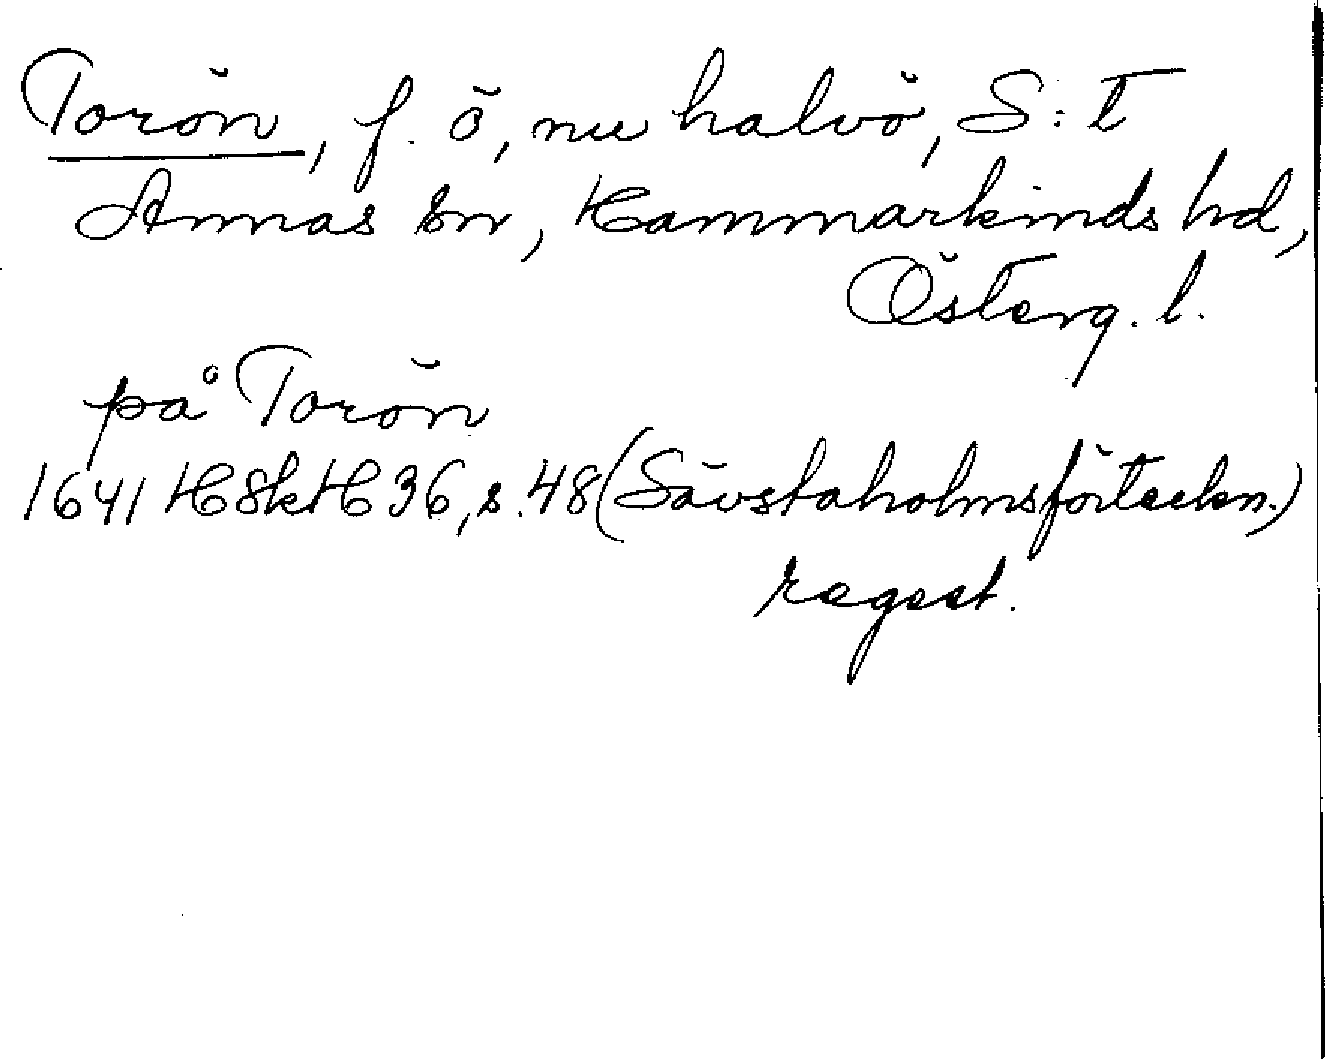 Torön, f. ö, nu halvö, S:t
Annas sn, Hammarkinds hd,
Österg. l.
på Torön
1641 HSkH 36, s. 48 (Sävstaholmsförteckn.)
regest.